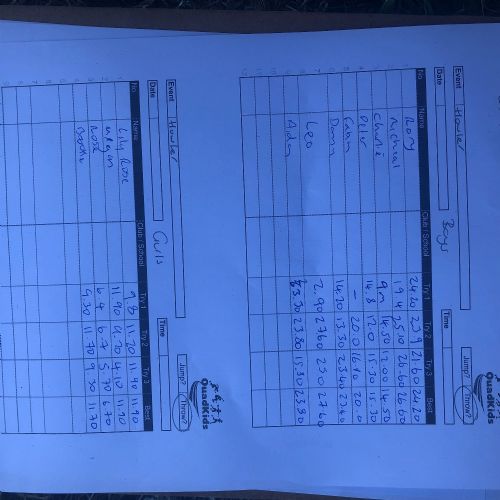 QuadKids
Event Howler Boys Jump? Throw?
Date Time
No. Name Club / School Try 1 Try 2 Try 3 Best
Rory 24.20 23.9 21.60 24.20
Micheal 19.4 25.10 26.60 26.60
Charlie 9m 14.50 12.00 14.50
14.8 12.0 15.30 15.30
- 20.0 16.10 20.0
14.20 13.30 23.40 23.40
Leo 2.90 27.60 25.0 27.60
Aiden 23.80 15.30 23.80
QuadKids
Event Howler Girls Jump? Throw?
Date Time
No. Name Club / School Try 1 Try 2 Try 3 Best
Lily Rose 11.20 11.90 11.90
Megan 11.90 9.20 4.10 11.90
Rose 6.7 6.7 5.70 6.70
9.30 11.70 9.30 11.70